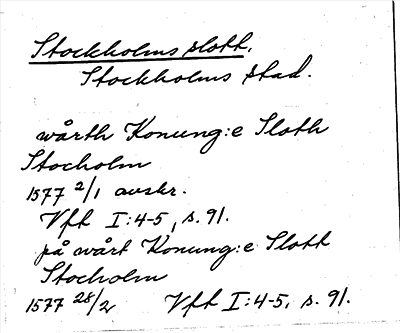 Stockholms slott.
Stockholms stad.
wårth Konung:e Sloth
Stocholm
1577 2/1 avskr.
Vfk I:4-5, s. 91.
på wårt Konung:e Slott
Stocholm
1577 28/2 Vfk I:4-5, s. 91.